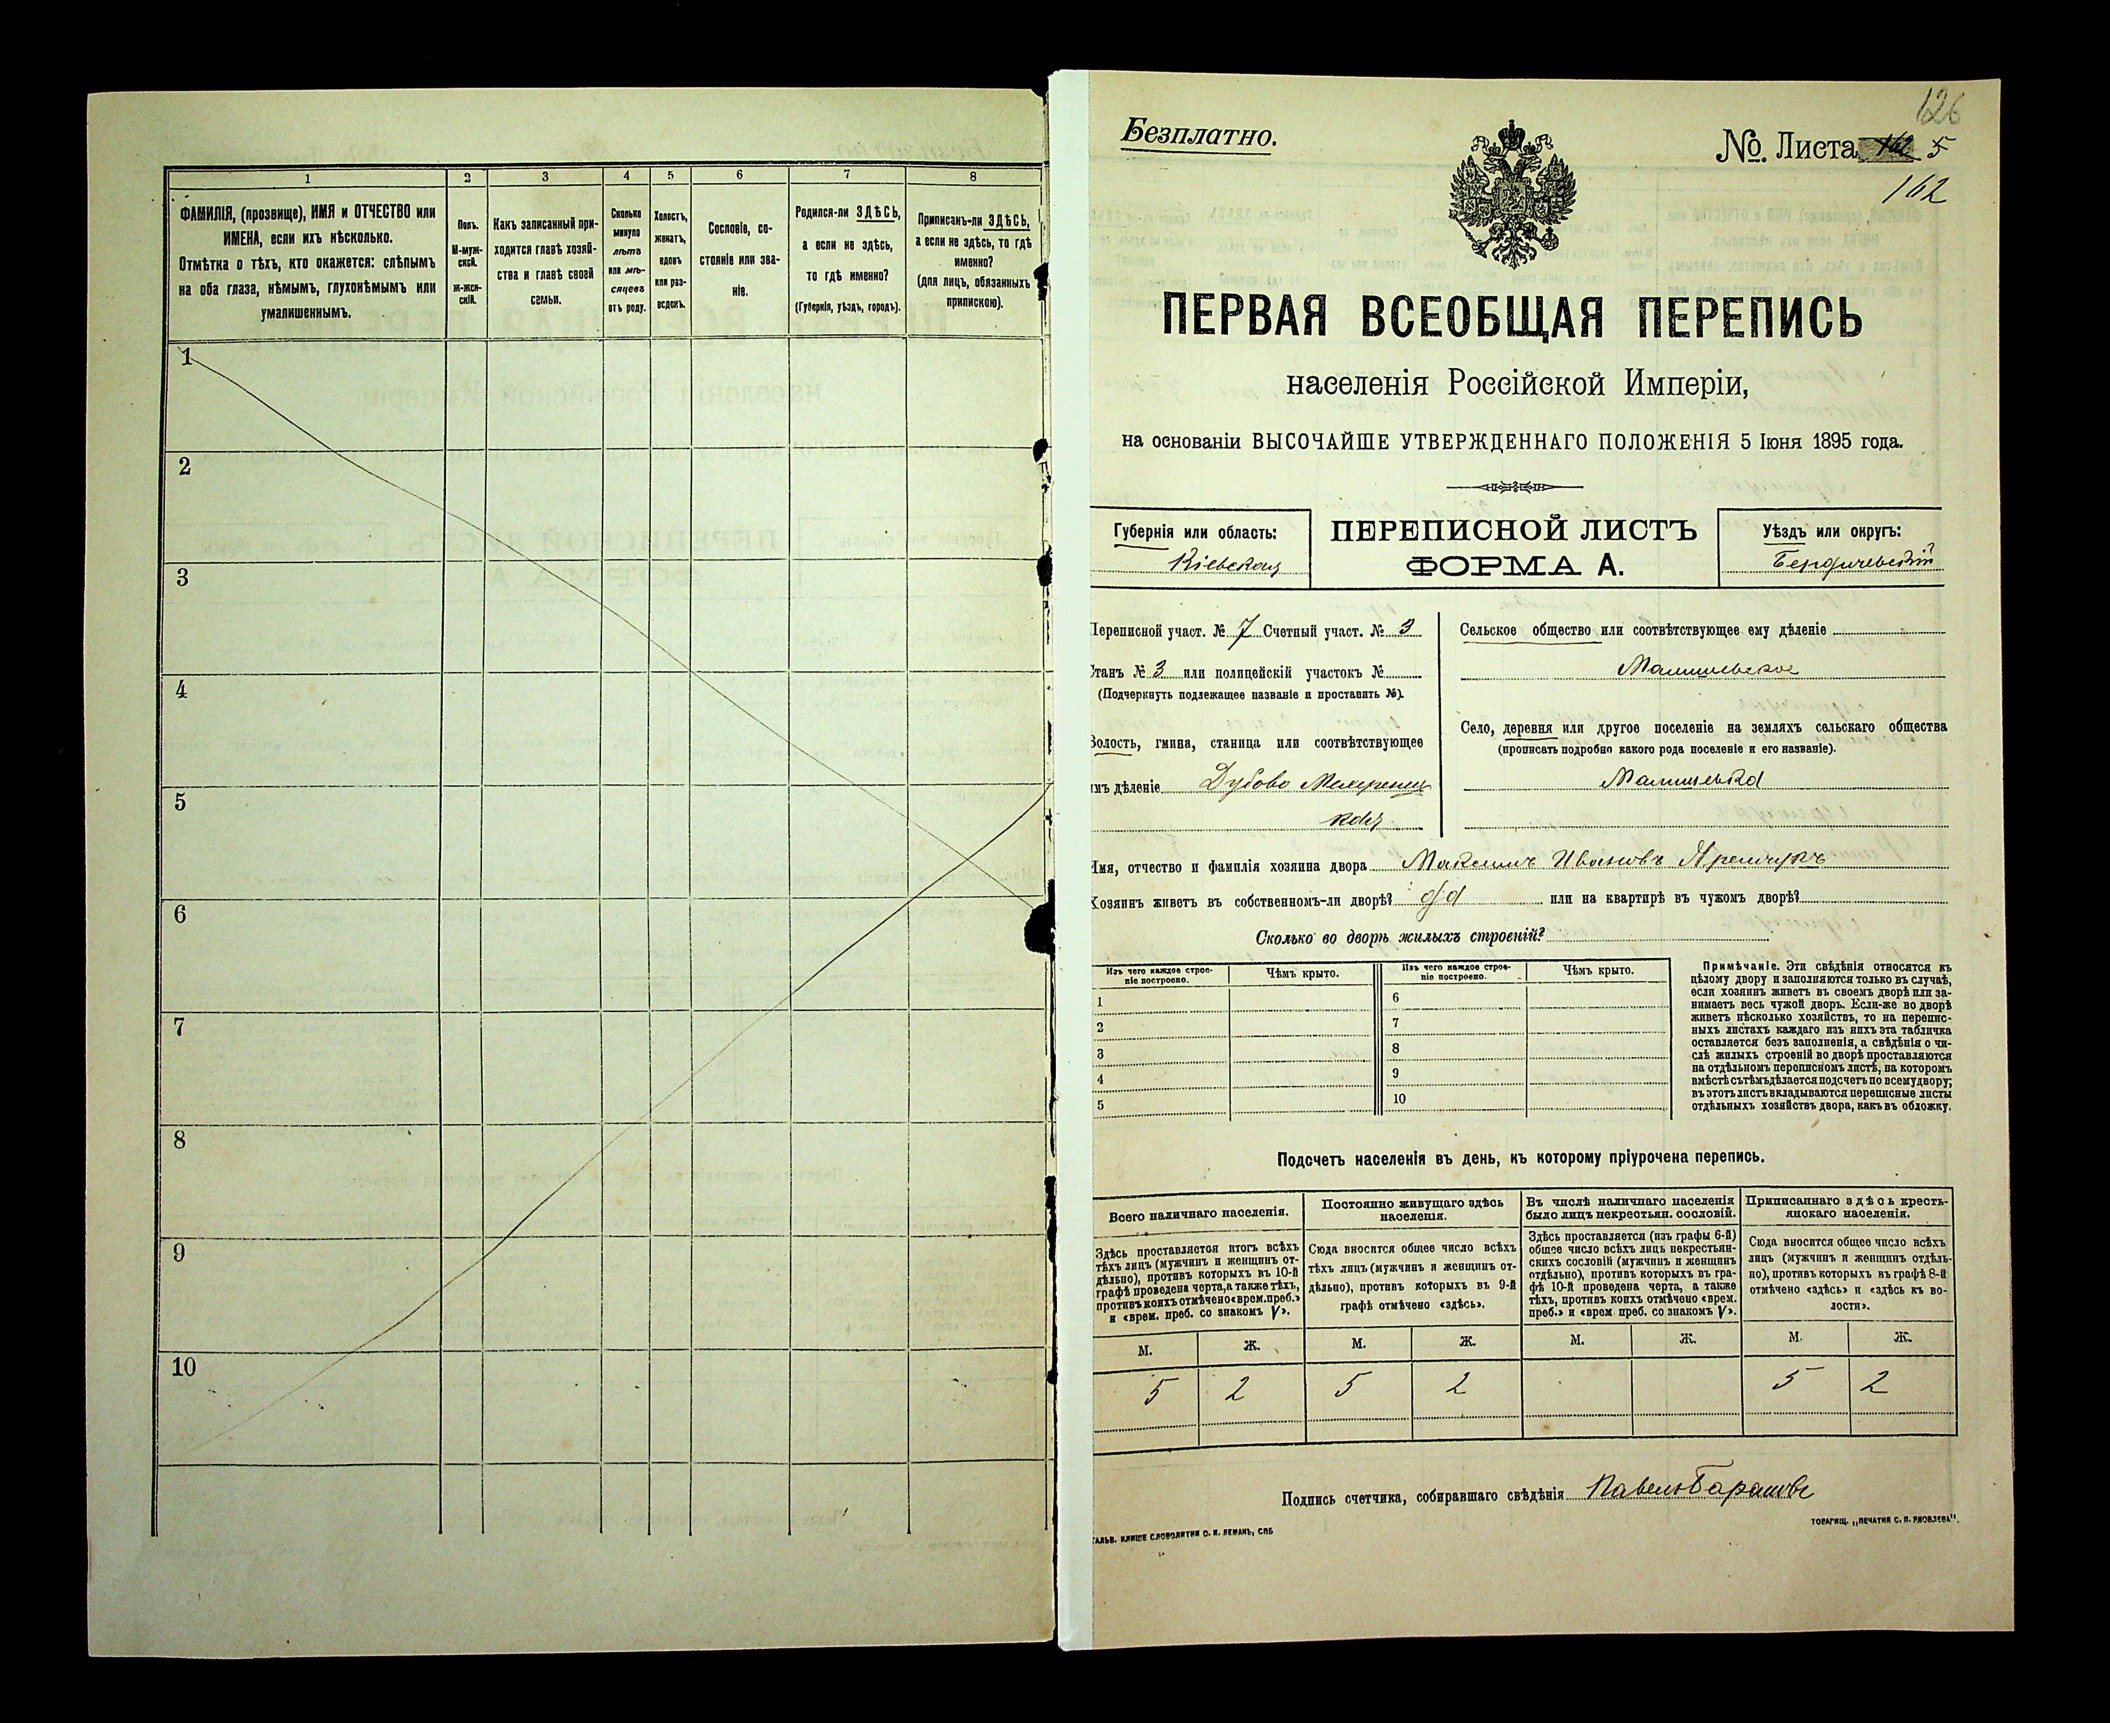 1 2 3 4 5 6 7 8
ФАМИЛІЯ, (прозвище), ИМЯ и ОТЧЕСТВО или
ИМЕНА, если ихъ нѣсколько.
Отмѣтка о тѣхъ, кто окажется: слѣпымъ
на оба глаза, нѣмымъ, глухонѣмымъ или
умалишеннымъ.
Полъ.
М-муж-
ской.
ж-жен-
скій.
Какъ записанный при-
ходится главѣ хозяй-
ства и главѣ своей
семьи.
Сколько
минуло
лѣтъ
или мѣ-
сяцевъ
отъ роду.
Холостъ,
женатъ,
вдовъ
или раз-
веденъ.
Сословіе, со-
стояніе или зва-
ніе.
Родился-ли ЗДѢСЬ,
а если не здѣсь,
то гдѣ именно?
(Губернія, уѣздъ, городъ).
Приписанъ-ли ЗДѢСЬ,
а если не здѣсь, то гдѣ
именно?
(для лицъ, обязанныхъ
припискою).
1
2
3
4
5
6
7
8
9
10
126
Безплатно.
№. Листа 5
162
ПЕРВАЯ ВСЕОБЩАЯ ПЕРЕПИСЬ
населенія Россійской Имперіи,
на основаніи ВЫСОЧАЙШЕ УТВЕРЖДЕННАГО ПОЛОЖЕНІЯ 5 Іюня 1895 года.
Губернія или область:
Кіевская
ПЕРЕПИСНОЙ ЛИСТЪ
ФОРМА А.
Уѣздъ или округъ:
Бердичевскій
Переписной участ. № 7 Счетный участ. № 3
Станъ № 3 или полицейскій участокъ №
(Подчеркнуть подлежащее названіе и проставить №).
Волость, гмина, станица или соотвѣтствующее
имъ дѣленіе Дубово Махаринец
кая
Сельское общество или соотвѣтствующее ему дѣленіе
Малишевское
Село, деревня или другое поселеніе на земляхъ сельскаго общества
(прописать подробно какого рода поселеніе и его названіе).
Малишевка
Имя, отчество и фамилія хозяина двора Максимъ Ивановъ Яремчукъ
Хозяинъ живетъ въ собственномъ-ли дворѣ? да или на квартирѣ въ чужомъ дворѣ?
Сколько во дворѣ жилыхъ строеній?
Изъ чего каждое строе-
ніе построено.
Чѣмъ крыто.
Изъ чего каждое строе-
ніе построено.
Чѣмъ крыто.
1 6
2 7
3 8
4 9
5 10
Примѣчаніе. Эти свѣдѣнія относятся къ
цѣлому двору и заполняются только въ случаѣ,
если хозяинъ живетъ въ своемъ дворѣ или за-
нимаетъ весь чужой дворъ. Если-же во дворѣ
живетъ нѣсколько хозяйствъ, то на перепис-
ныхъ листахъ каждаго изъ нихъ эта табличка
оставляется безъ заполненія, а свѣдѣнія о чи-
слѣ жилыхъ строеній во дворѣ проставляются
на отдѣльномъ переписномъ листѣ, на которомъ
вмѣстѣ съ тѣмъ дѣлается подсчетъ по всему двору;
въ этотъ листъ вкладываются переписные листы
отдѣльныхъ хозяйствъ двора, какъ въ обложку.
Подсчетъ населенія въ день, къ которому пріурочена перепись.
Всего наличнаго населенія.
Здѣсь проставляется итогъ всѣхъ
тѣхъ лицъ (мужчинъ и женщинъ от-
дѣльно), противъ которыхъ въ 10-й
графѣ проведена черта, а также тѣхъ,
противъ коихъ отмѣчено «врем. преб.»
и «врем. преб. со знакомъ V».
Постоянно живущаго здѣсь
населенія.
Сюда вносится общее число всѣхъ
тѣхъ лицъ (мужчинъ и женщинъ от-
дѣльно), противъ которыхъ въ 9-й
графѣ отмѣчено «здѣсь».
Въ числѣ наличнаго населенія
было лицъ некрестьян. сословій.
Здѣсь проставляется (изъ графы 6-й)
общее число всѣхъ лицъ некрестьян-
скихъ сословій (мужчинъ и женщинъ
отдѣльно), противъ которыхъ въ гра-
фѣ 10-й проведена черта, а также
тѣхъ, противъ коихъ отмѣчено «врем.
преб.» и «врем преб. со знакомъ V».
Приписаннаго здѣсь кресть-
янскаго населенія.
Сюда вносится общее число всѣхъ
лицъ (мужчинъ и женщинъ отдѣль-
но), противъ которыхъ въ графѣ 8-й
отмѣчено «здѣсь» и «здѣсь къ во-
лости».
М. Ж. М. Ж. М. Ж. М. Ж.
5 2 5 2 5 2
Подпись счетчика, собиравшаго свѣдѣнія Павелъ Барановъ
ГАЛЬВ. КЛИШЕ СЛОВОЛИТНИ О. И. ЛЕМАНЪ, СПБ
ТОВАРИЩ. „ПЕЧАТНЯ С. П. ЯКОВЛЕВА".